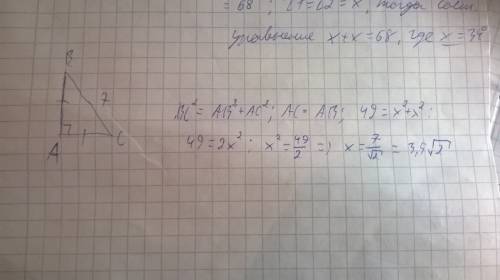 = 68 ; ∠1=∠2 = x, тогда сост.
уравнение x+x=68, где x=34°
B
7
A
C
BC² = AB²+AC²; AC=AB; 49=x²+x²;
49=2x²; x²=49/2 => x=7/√2 = 3,5√2